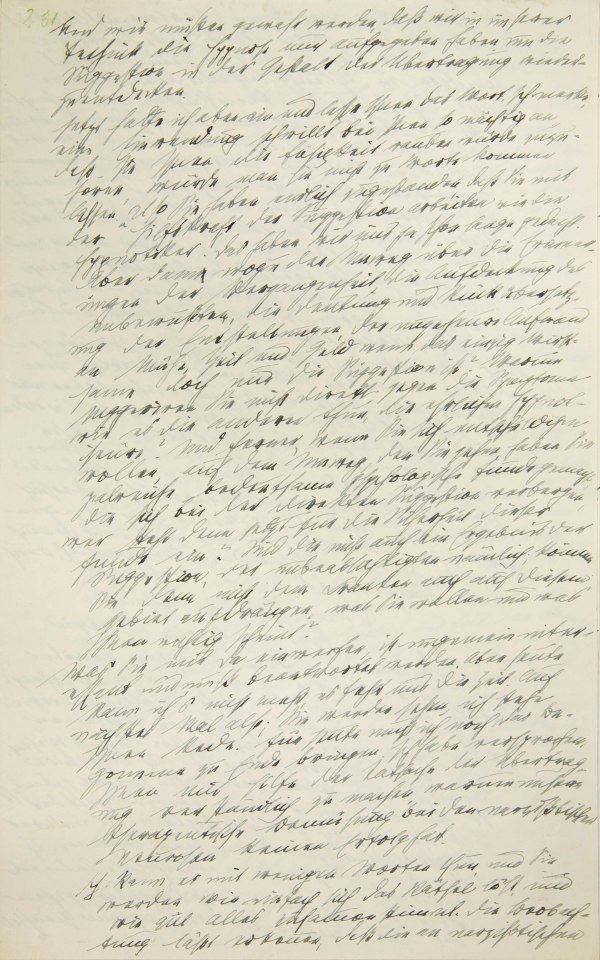 231
Und wir müssen gewahr werden daß wir in unserer
Technik die Hypnose nur aufgegeben haben um die
Suggestion in der Gestalt der Übertragung wieder-
zuentdecken.
Jetzt halte ich aber ein und lasse Ihnen das Wort. Ich merke,
eine Einwendung schwillt bei Ihnen so mächtig an
daß sie Ihnen die Fähigkeit rauben würde zuzu-
hören würde man sie nicht zu Worte kommen
lassen. „Also Sie haben endlich zugestanden daß Sie mit
der Hilfskraft der Suggestion arbeiten wie die
Hypnotiker. Das haben wir uns ja schon lange gedacht.
Aber dann wozu der Umweg über die Erinner-
ungen der Vergangenheit, die Aufdeckung des
Unbewußten, die Deutung und Rückübersetz-
ung der Entstellungen der ungeheure Aufwand
an Mühe, Zeit und Geld wenn das einzig Wirk-
same doch nur die Suggestion ist? Warum
suggeriren Sie nicht direkt gegen die Symptome
wie es die anderen thun, die ehrlichen Hypnoti-
seure? Und ferner wenn Sie sich entschuldigen
wollen, auf dem Umweg, den Sie gehen, haben Sie
zalreiche bedeutsame psychologische Funde gemacht
die sich bei der direkten Suggestion verbergen,
wer steht denn jetzt für die Sicherheit dieser
Funde ein? Sind die nicht auch ein Ergebnis der
Suggestion, der unbeabsichtigten nämlich, können
Sie denn nicht dem Kranken auch auf diesem
Gebiet aufdrängen, was Sie wollen und was
Ihnen richtig scheint?“
Was Sie mir da einwerfen, ist ungemein inter-
essant und muß beantwortet werden. Aber heute
kann ich's nicht mehr, es fehlt uns die Zeit. Auf
nächstes Mal also. Sie werden sehen, ich stehe
Ihnen Rede. Für heute muß ich noch das Be-
gonnene zu Ende bringen. Ich habe versprochen,
Ihnen mit Hilfe der Tatsache der Übertrag-
ung verständlich zu machen warum unsere
therapeutische Bemühung bei den narzißtischen
Neurosen keinen Erfolg hat.
Ich kann es mit wenigen Worten thun, und Sie
werden wie einfach sich das Rätsel löst und
wie gut alles zusammenstimmt. Die Beobach-
tung läßt erkennen, daß die an narzißtischen